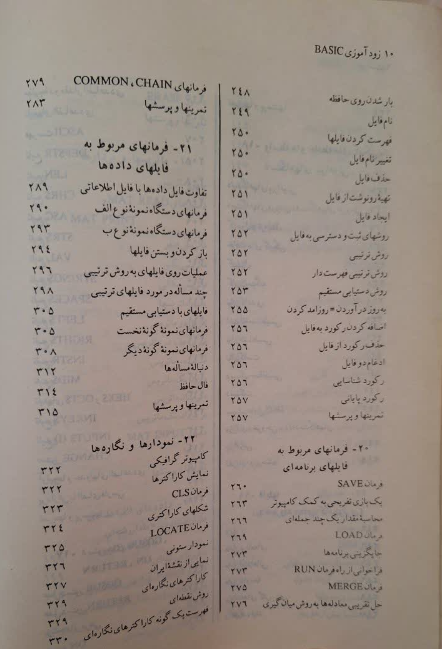 ۱۰ زود آموزی BASIC
بار شدن روی حافظه ۲۴۸
نام فایل ۲۴۹
فهرست کردن فایلها ۲۵۰
تغییر نام فایل ۲۵۰
حذف فایل ۲۵۰
تهیهٔ رونوشت از فایل ۲۵۱
ایجاد فایل ۲۵۱
روشهای ثبت و دسترسی به فایل ۲۵۲
روش ترتیبی ۲۵۲
روش ترتیبی فهرست دار ۲۵۲
روش دستیابی مستقیم ۲۵۳
به روز در آوردن = روزآمد کردن ۲۵۵
اضافه کردن رکورد به فایل ۲۵۶
حذف رکورد از فایل ۲۵۶
ادغام دو فایل ۲۵۶
رکورد شناسایی ۲۵۶
رکورد پایانی ۲۵۷
تمرینها و پرسشها ۲۵۷
۲۰- فرمانهای مربوط به
فایلهای برنامه‌ای
فرمان SAVE ۲۶۰
یک بازی تفریحی به کمک کامپیوتر ۲۶۳
محاسبهٔ مقدار یک چند جمله‌ای ۲۶۶
فرمان LOAD ۲۶۹
جایگزینی برنامه‌ها ۲۷۳
فراخوانی از راه فرمان RUN ۲۷۳
فرمان MERGE ۲۷۵
حل تقریبی معادله‌ها به روش میان‌گیری ۲۷۶
فرمانهای CHAIN ، COMMON ۲۷۹
تمرینها و پرسشها ۲۸۳
۲۱- فرمانهای مربوط به
فایلهای داده‌ها
تفاوت فایل داده‌ها با فایل اطلاعاتی ۲۸۹
فرمانهای دستگاه نمونهٔ نوع الف ۲۹۰
فرمانهای دستگاه نمونهٔ نوع ب ۲۹۳
باز کردن و بستن فایلها ۲۹۴
عملیات روی فایلهای به روش ترتیبی ۲۹۶
چند مسأله در مورد فایلهای ترتیبی ۲۹۸
فایلهای با دستیابی مستقیم ۳۰۵
فرمانهای نمونهٔ گونهٔ نخست ۳۰۵
فرمانهای نمونهٔ گونهٔ دیگر ۳۰۸
دنبالهٔ مسأله‌ها ۳۱۲
فال حافظ ۳۱۴
تمرینها و پرسشها ۳۱۵
۲۲- نمودارها و نگاره‌ها
کامپیوتر گرافیکی ۳۲۲
نمایش کاراکترها ۳۲۲
فرمان CLS ۳۲۳
شکلهای کاراکتری ۳۲۴
فرمان LOCATE ۳۲۵
نمودار ستونی ۳۲۶
نمایی از نقشهٔ ایران ۳۲۷
کاراکترهای نگاره‌ای ۳۲۹
روش نقطه‌ای ۳۲۹
فهرست یک گونه کاراکترهای نگاره‌ای ۳۳۰